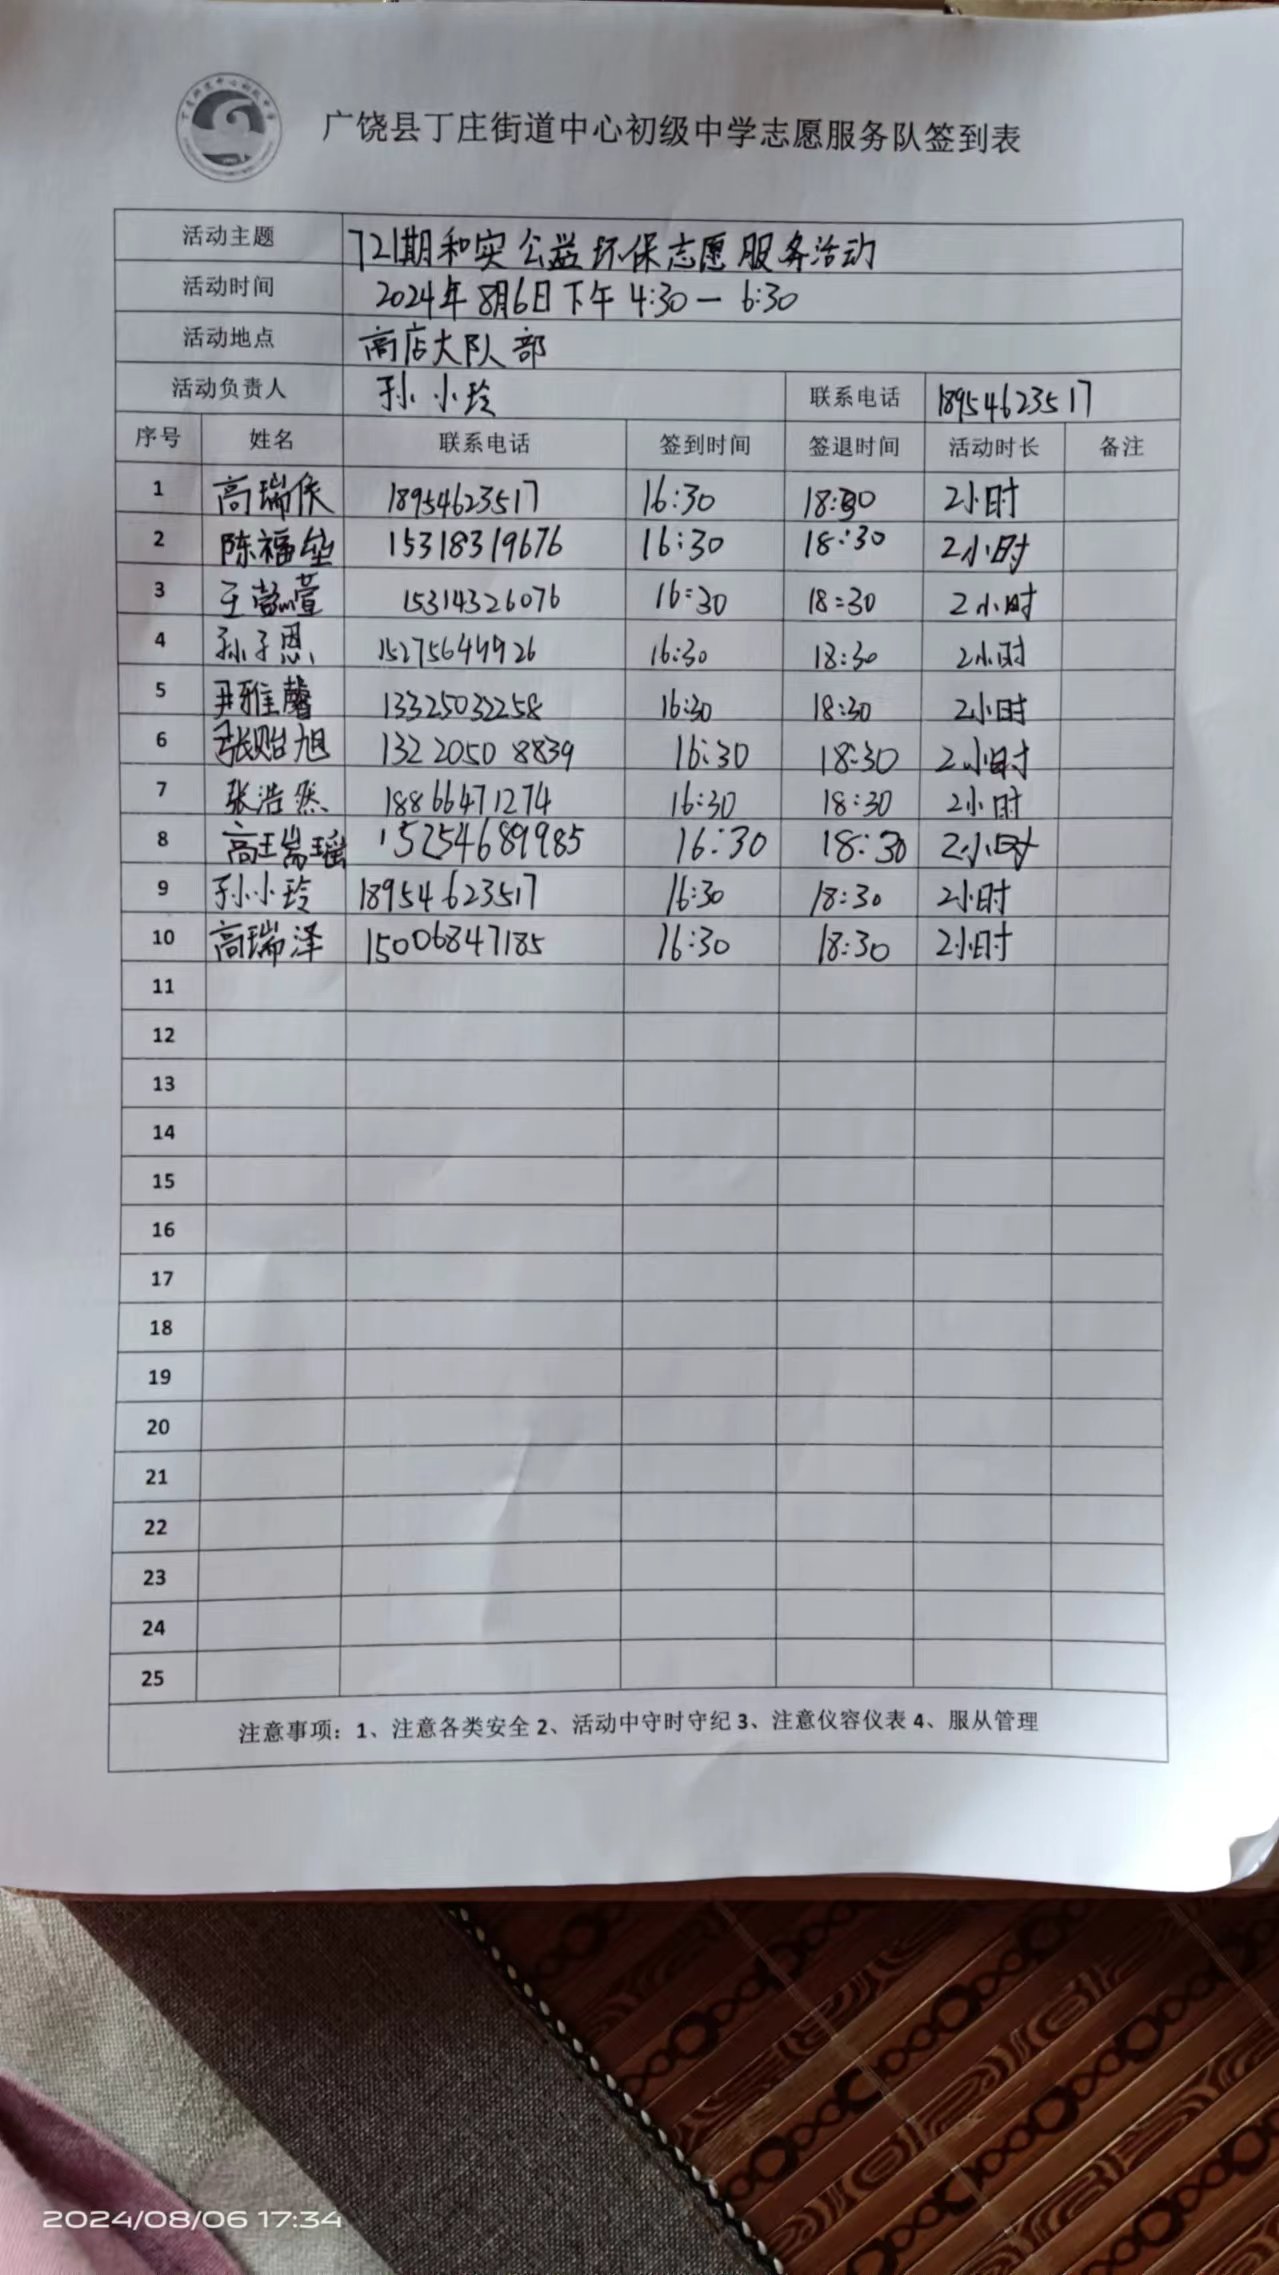 广饶县丁庄街道中心初级中学志愿服务队签到表
活动主题 721期和实公益环保志愿服务活动
活动时间 2024年8月6日下午 4:30一 6:30
活动地点 商店大队部
活动负责人 孙小玲 联系电话 18954623517
序号 姓名 联系电话 签到时间 签退时间 活动时长 备注
1 高瑞 18954623517 16:30 18:30 2小时
2 陈福 15318319676 16:30 18:30 2小时
3 王懿萱 15314326076 16:30 18:30 2小时
4 孙子恩 15275649926 16:30 18:30 2小时
5 尹雅馨 13325032258 16:30 18:30 2小时
6 张贻旭 1322050 8839 16:30 18:30 2小时
7 张浩然 18866471274 16:30 18:30 2小时
8 高瑞瑶 15254689985 16:30 18:30 2小时
9 孙小玲 18954623517 16:30 18:30 2小时
10 高瑞泽 15006847185 16:30 18:30 2小时
11
12
13
14
15
16
17
18
19
20
21
22
23
24
25
注意事项：1、注意各类安全 2、活动中守时守纪 3、注意仪容仪表 4、服从管理
2024/08/06 17:34